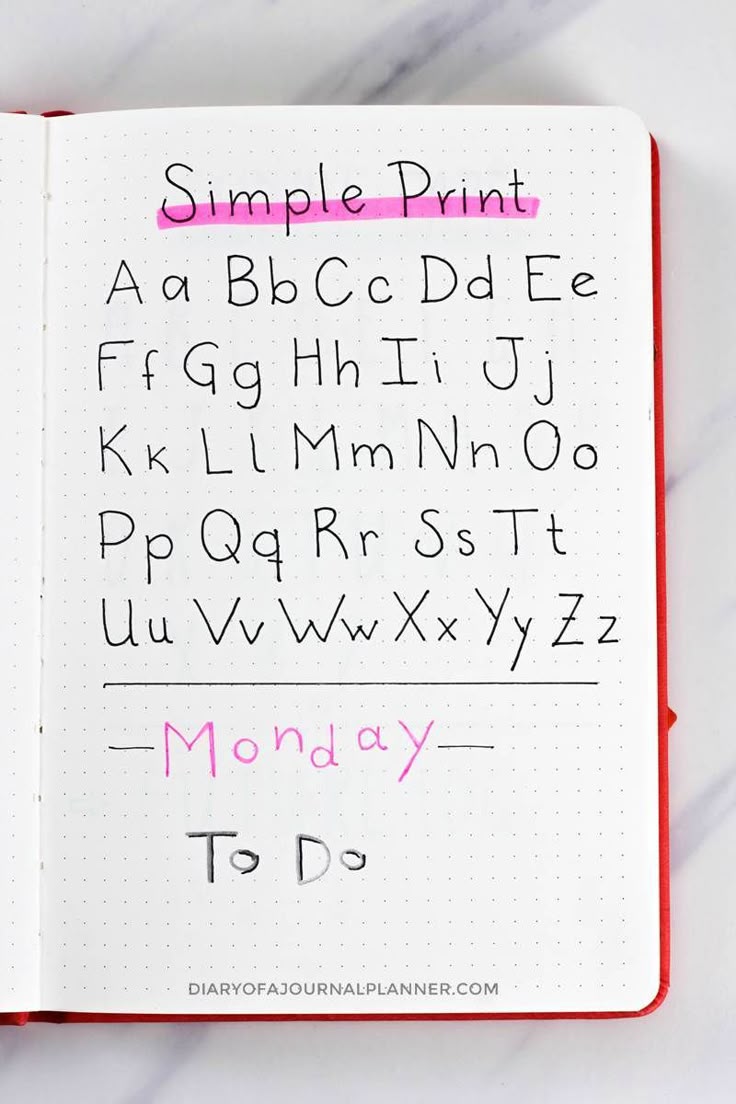 Simple Print
Aa Bb Cc Dd Ee
Ff Gg Hh Ii Jj
Kk Ll Mm Nn Oo
Pp Qq Rr Ss Tt
Uu Vv Ww Xx Yy Zz
—Monday—
To Do
DIARYOFAJOURNALPLANNER.COM